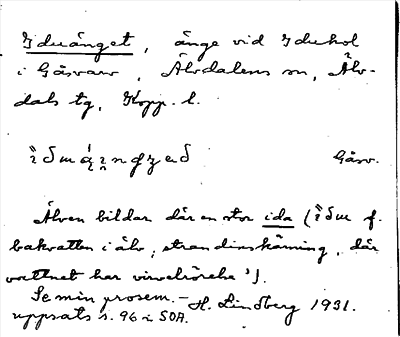 Iduänget, änge vid Iduhol
i Gåsvarv, Älvdalens sn, Älv-
dals tg, Kopp. l.
Gåsv.
Älven bildar där en stor ida (
bakvatten i älv, strandinskärning, där
vattnet har virvelrörelse').
Se min prosem.- H. Lindberg 1931.
uppsats s. 96 i SOA.